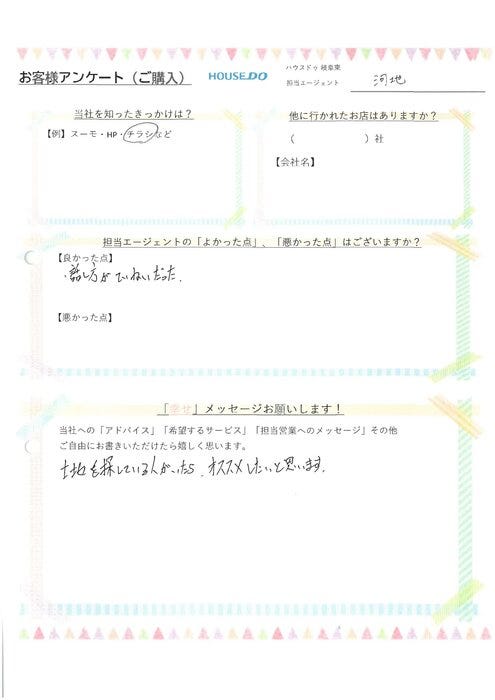 お客様アンケート（ご購入）
HOUSEDO
ハウスドゥ 岐阜東
担当エージェント 河地
当社を知ったきっかけは？
【例】スーモ・HP・チラシなど
他に行かれたお店はありますか？
（ ）社
【会社名】
担当エージェントの「よかった点」、「悪かった点」はございますか？
【良かった点】
・話し方がていねいだった．
【悪かった点】
「幸せ」メッセージお願いします！
当社への「アドバイス」「希望するサービス」「担当営業へのメッセージ」その他
ご自由にお書きいただけたら嬉しく思います。
土地を探している人がいたら、オススメしたいと思います。